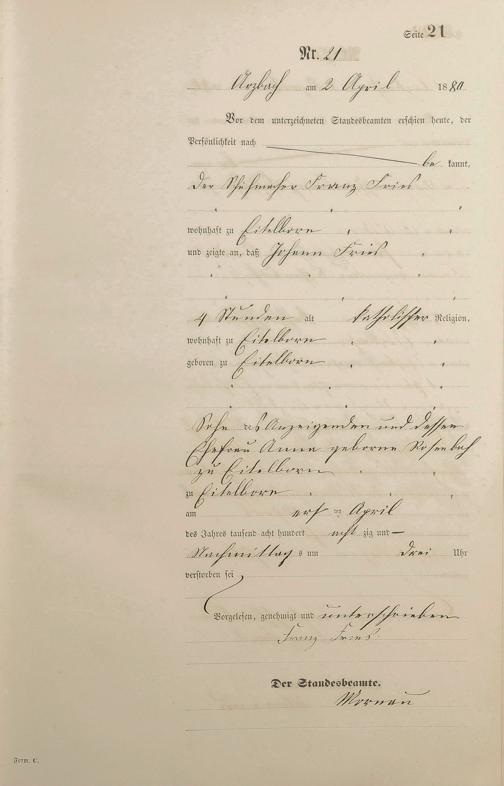 Seite 21
Nr. 21
Arzbach am 2 April 1880
Vor dem unterzeichneten Standesbeamten erschien heute, der
Persönlichkeit nach
be kannt,
der Schuhmacher Franz Fries
wohnhaft zu Eitelborn
und zeigte an, daß Johann Fries
4 Stunden alt katholischer Religion,
wohnhaft zu Eitelborn
geboren zu Eitelborn
Sohn des Anzeigenden und dessen
Ehefrau Anna geborne Rosenbach
zu Eitelborn
zu Eitelborn
am ersten April
des Jahres tausend acht hundert acht zig und
Nachmittag s um drei Uhr
verstorben sei
Vorgelesen, genehmigt und unterschrieben
Franz Fries
Der Standesbeamte.
Form. C.